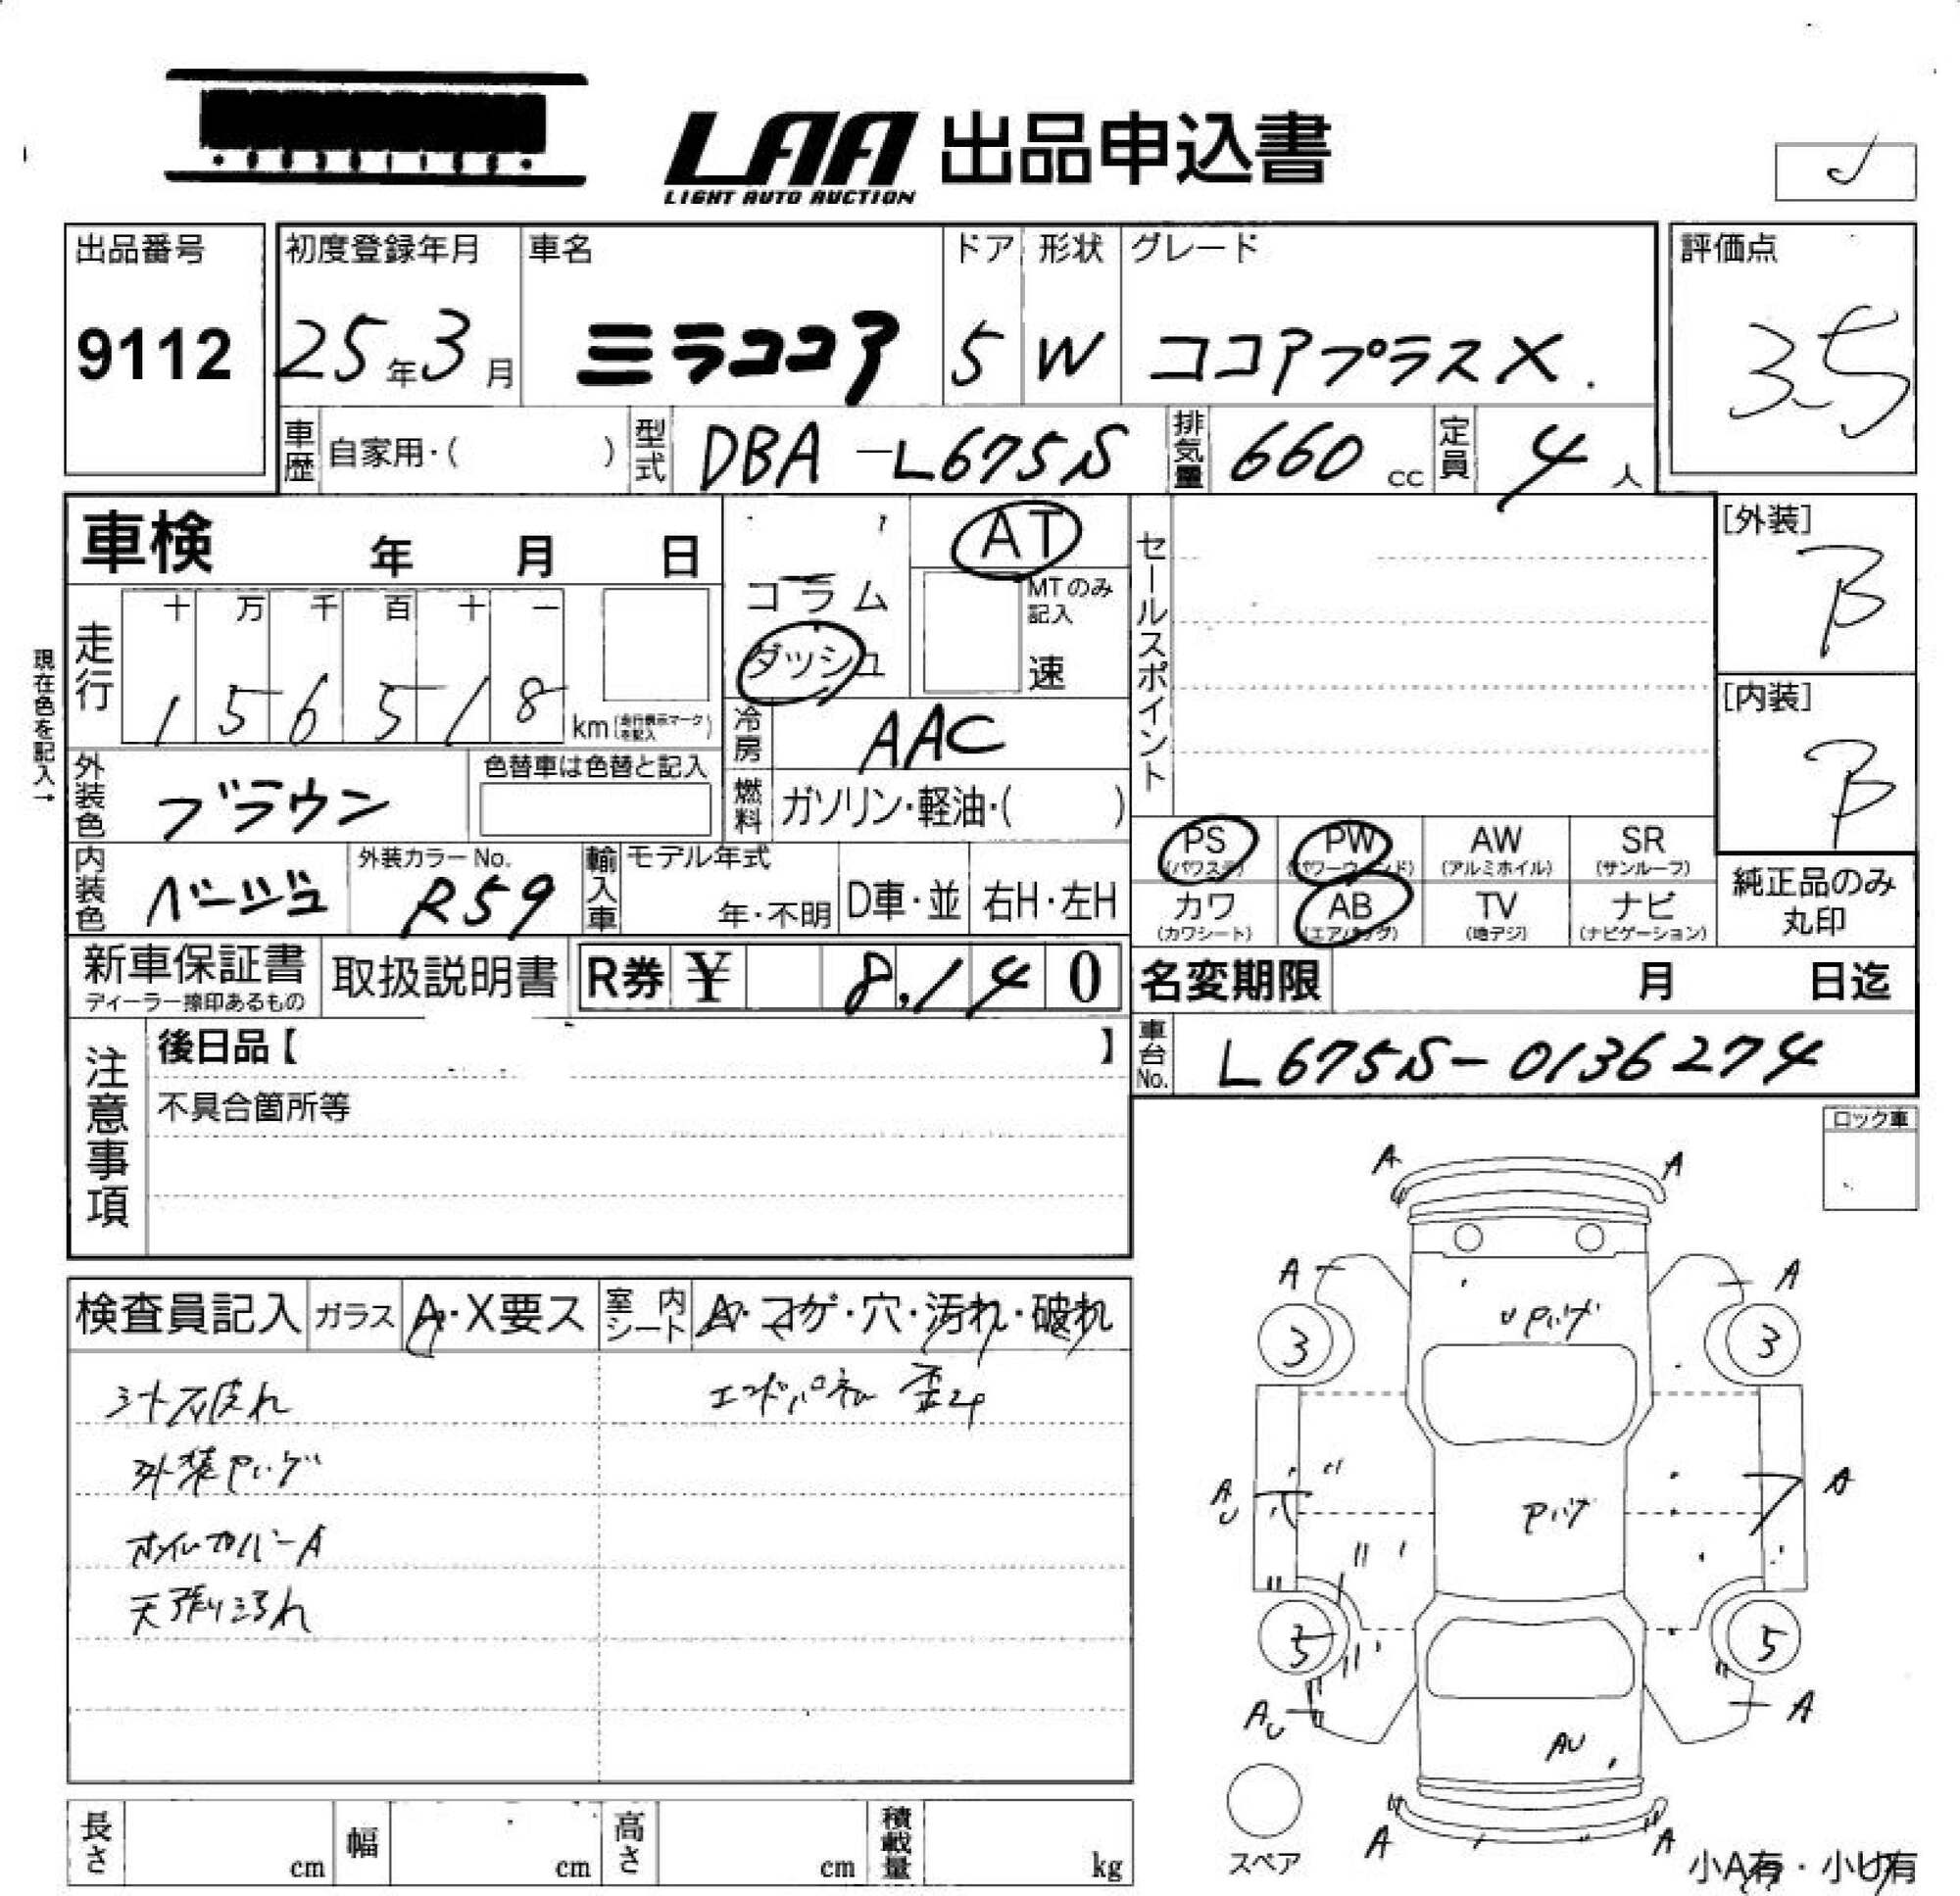 LAA 出品申込書
LIGHT AUTO AUCTION
出品番号 初度登録年月 車名 ドア 形状 グレード 評価点
9112 25年3月 ミラココア 5 W ココアプラスX. 3.5
車歴 自家用・( ) 型式 DBA-L675S 排気量 660 cc 定員 4人
車検 年 月 日 AT セールスポイント [外装] B
コラム MTのみ記入
走行 十 万 千 百 十 一 ダッシュ 速
1 5 6 5 1 8 km (走行表示マークを記入)
現在色を記入→
[内装] B
冷房 AAC
外装色 ブラウン 色替車は色替と記入 燃料 ガソリン・軽油・( )
PS (パワステ) PW (パワーウィンド) AW (アルミホイル) SR (サンルーフ)
内装色 ベージュ 外装カラーNo. R59 輸入車 モデル年式 年・不明 D車・並 右H・左H
カワ (カワシート) AB (エアバッグ) TV (地デジ) ナビ (ナビゲーション)
純正品のみ丸印
新車保証書 ディーラー捺印あるもの 取扱説明書 R券 ¥ 8,140 名変期限 月 日迄
注意事項 後日品【 】 車台No. L675S-0136274
不具合箇所等
ロック車
検査員記入 ガラス A・X要ス 室内シート A・コゲ・穴・汚れ・破れ
エンドパネル 歪み
外装
カバーA
天張り汚れ
A A
A A
3 3
AU A
5 5
AU A
AU
A A
スペア
小A有・小U有
長さ cm 幅 cm 高さ cm 積載量 kg